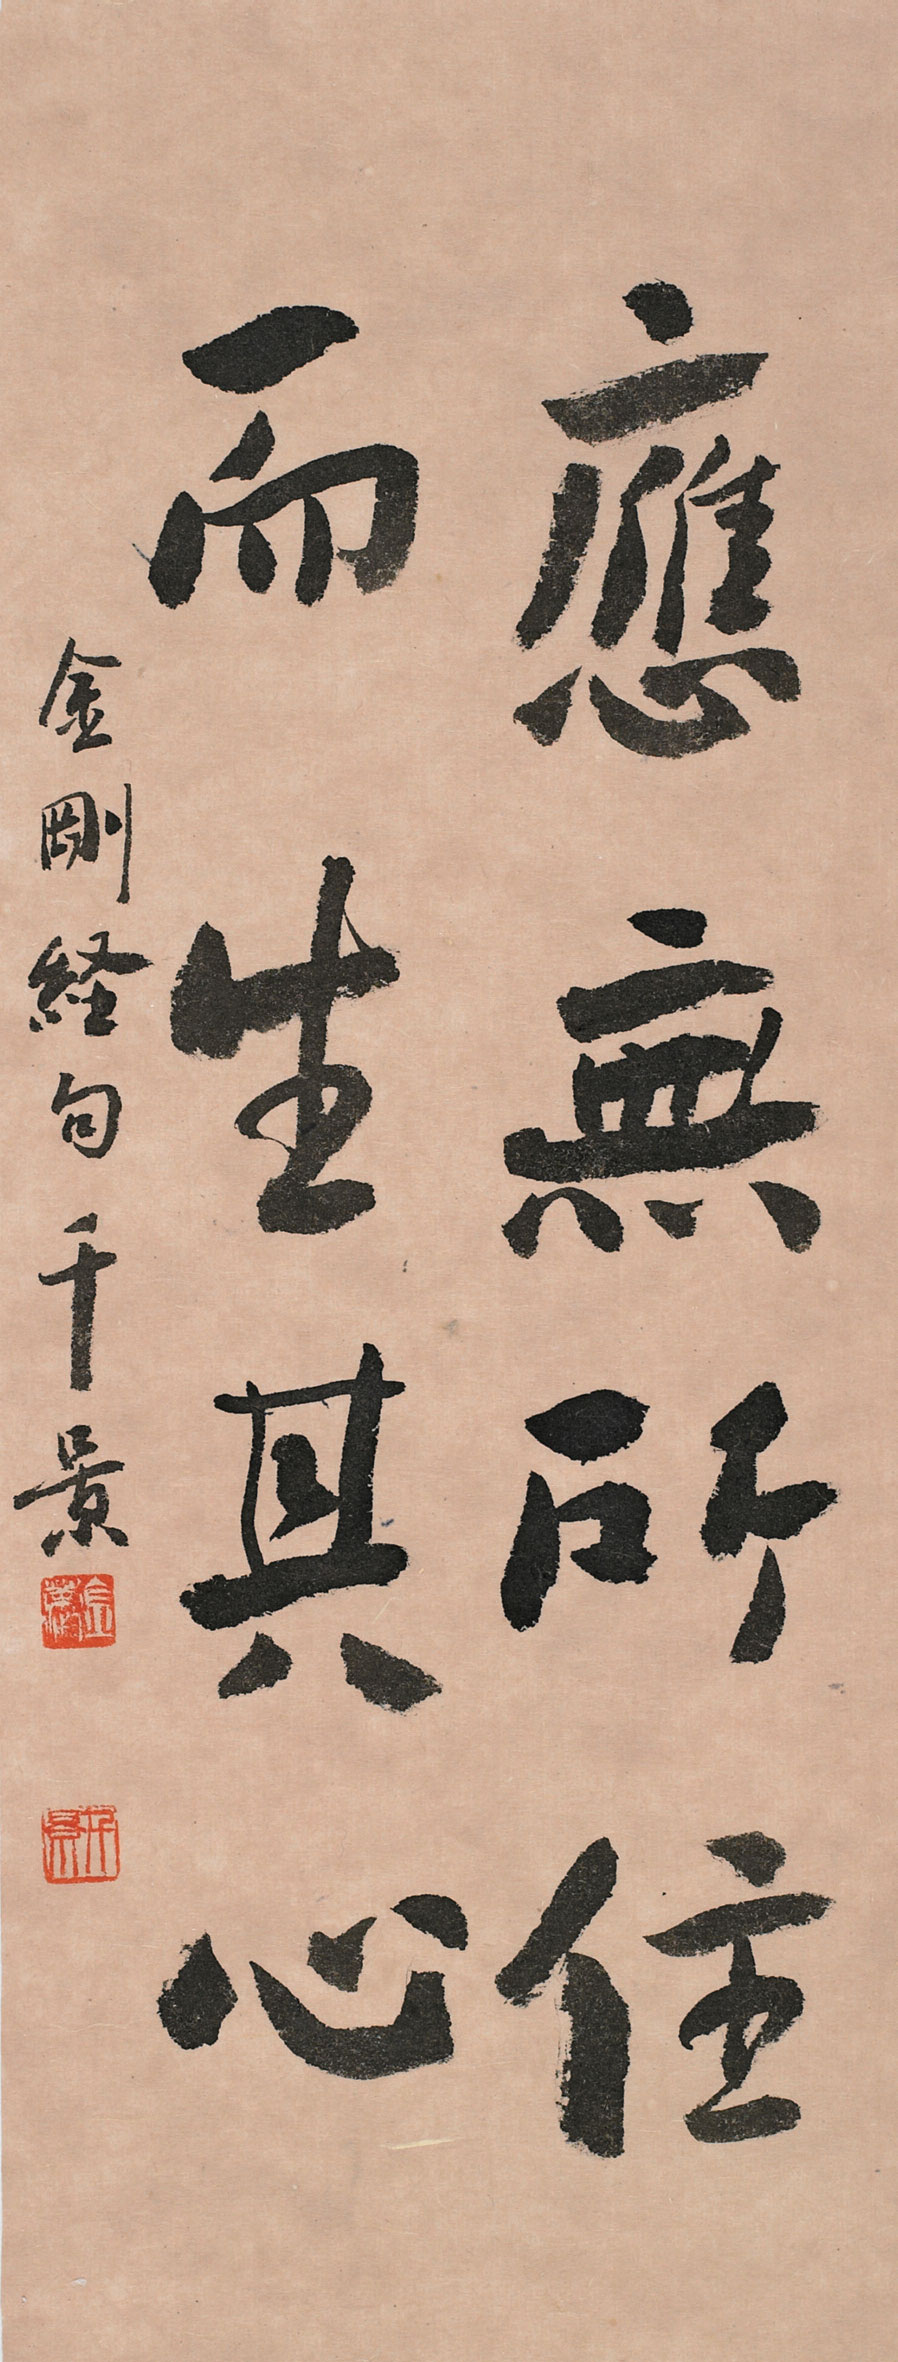 應無所住
而生其心
金剛経句千景